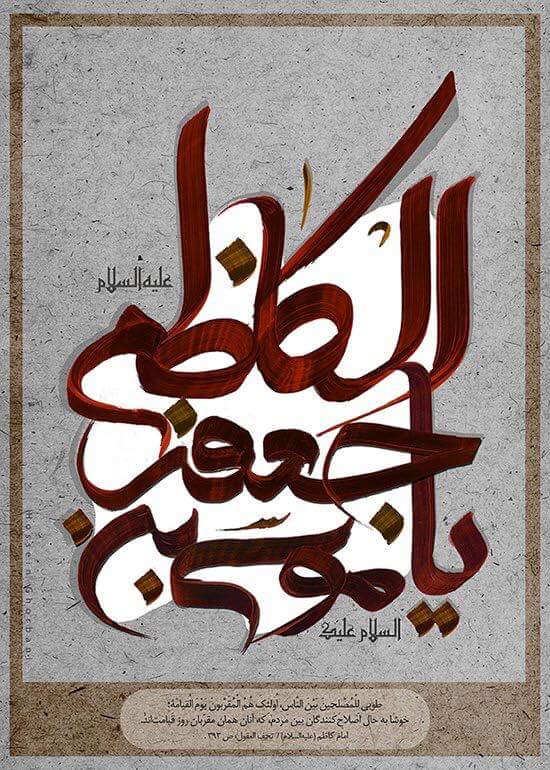 السلام علیک
یا موسی بن
جعفر
الکاظم
علیه السلام
طوبی لِلْمُصْلِحینَ بَیْنَ النّاسِ، اولئک هُمُ الْمُقَرَّبونَ یَوْمَ الْقیامَة؛
خوشا به حال اصلاح‌کنندگان بین مردم، که آنان همان مقرّبان روز قیامت‌اند.
امام کاظم (علیه‌السلام) / تحف العقول، ص ۳۹۳